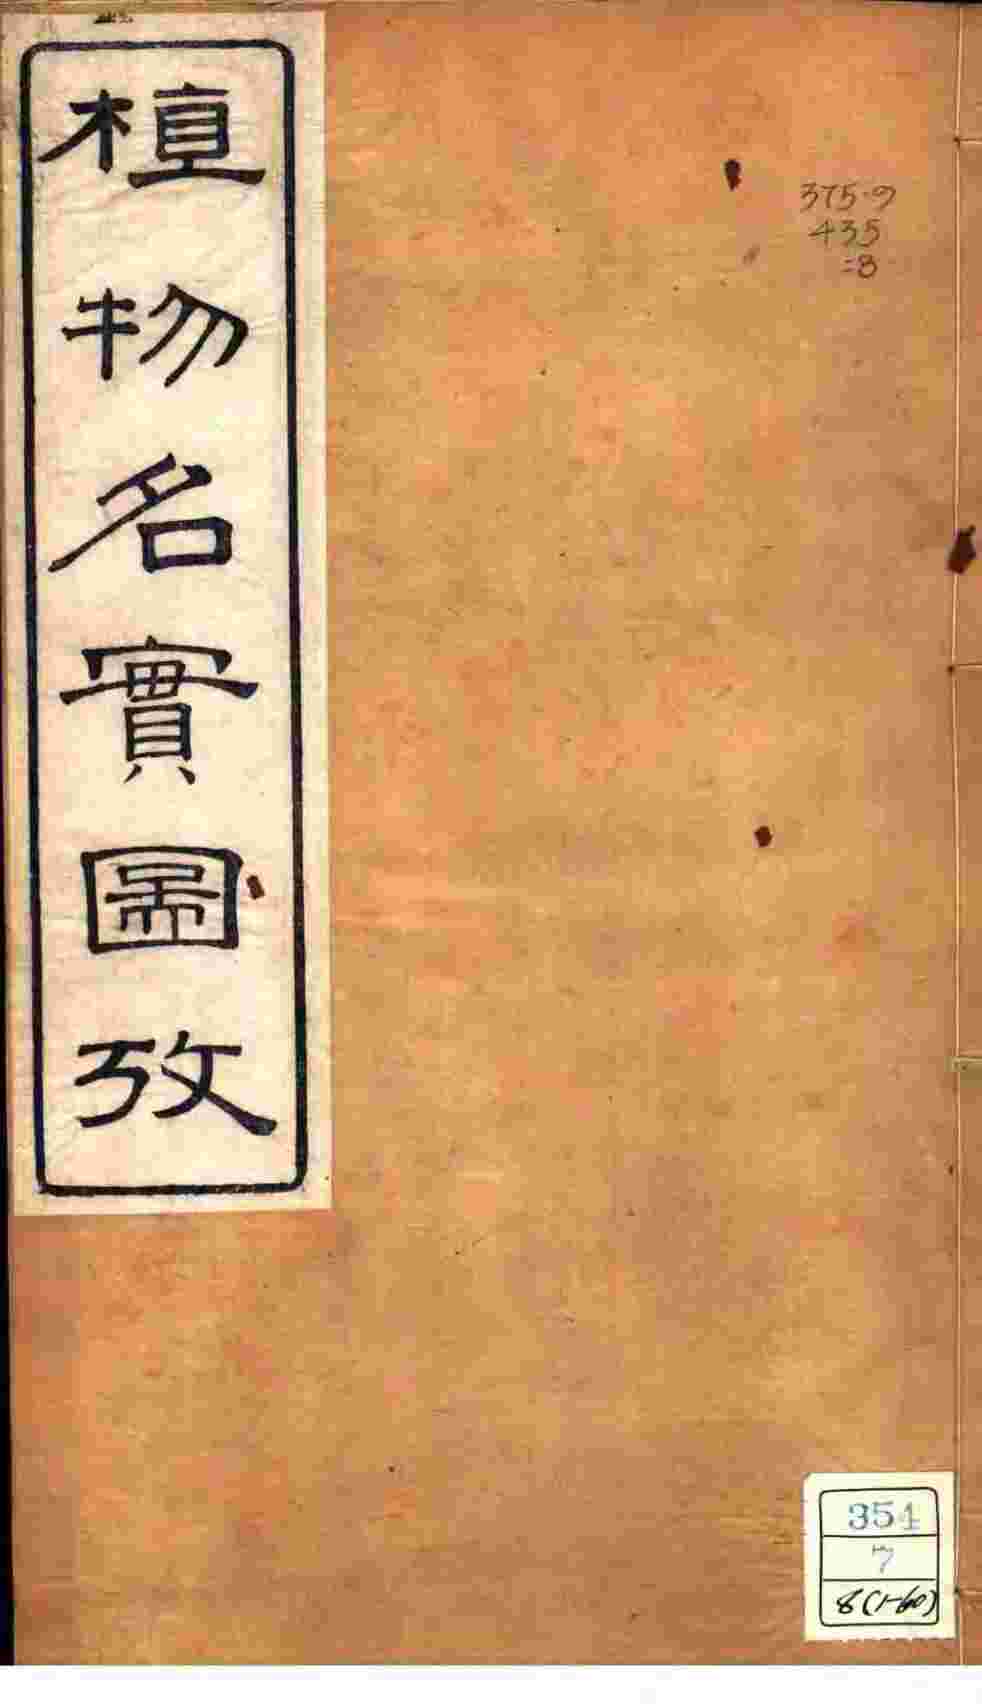 植物名實圖攷
375.9
435
=8
354
7
8(1-60)